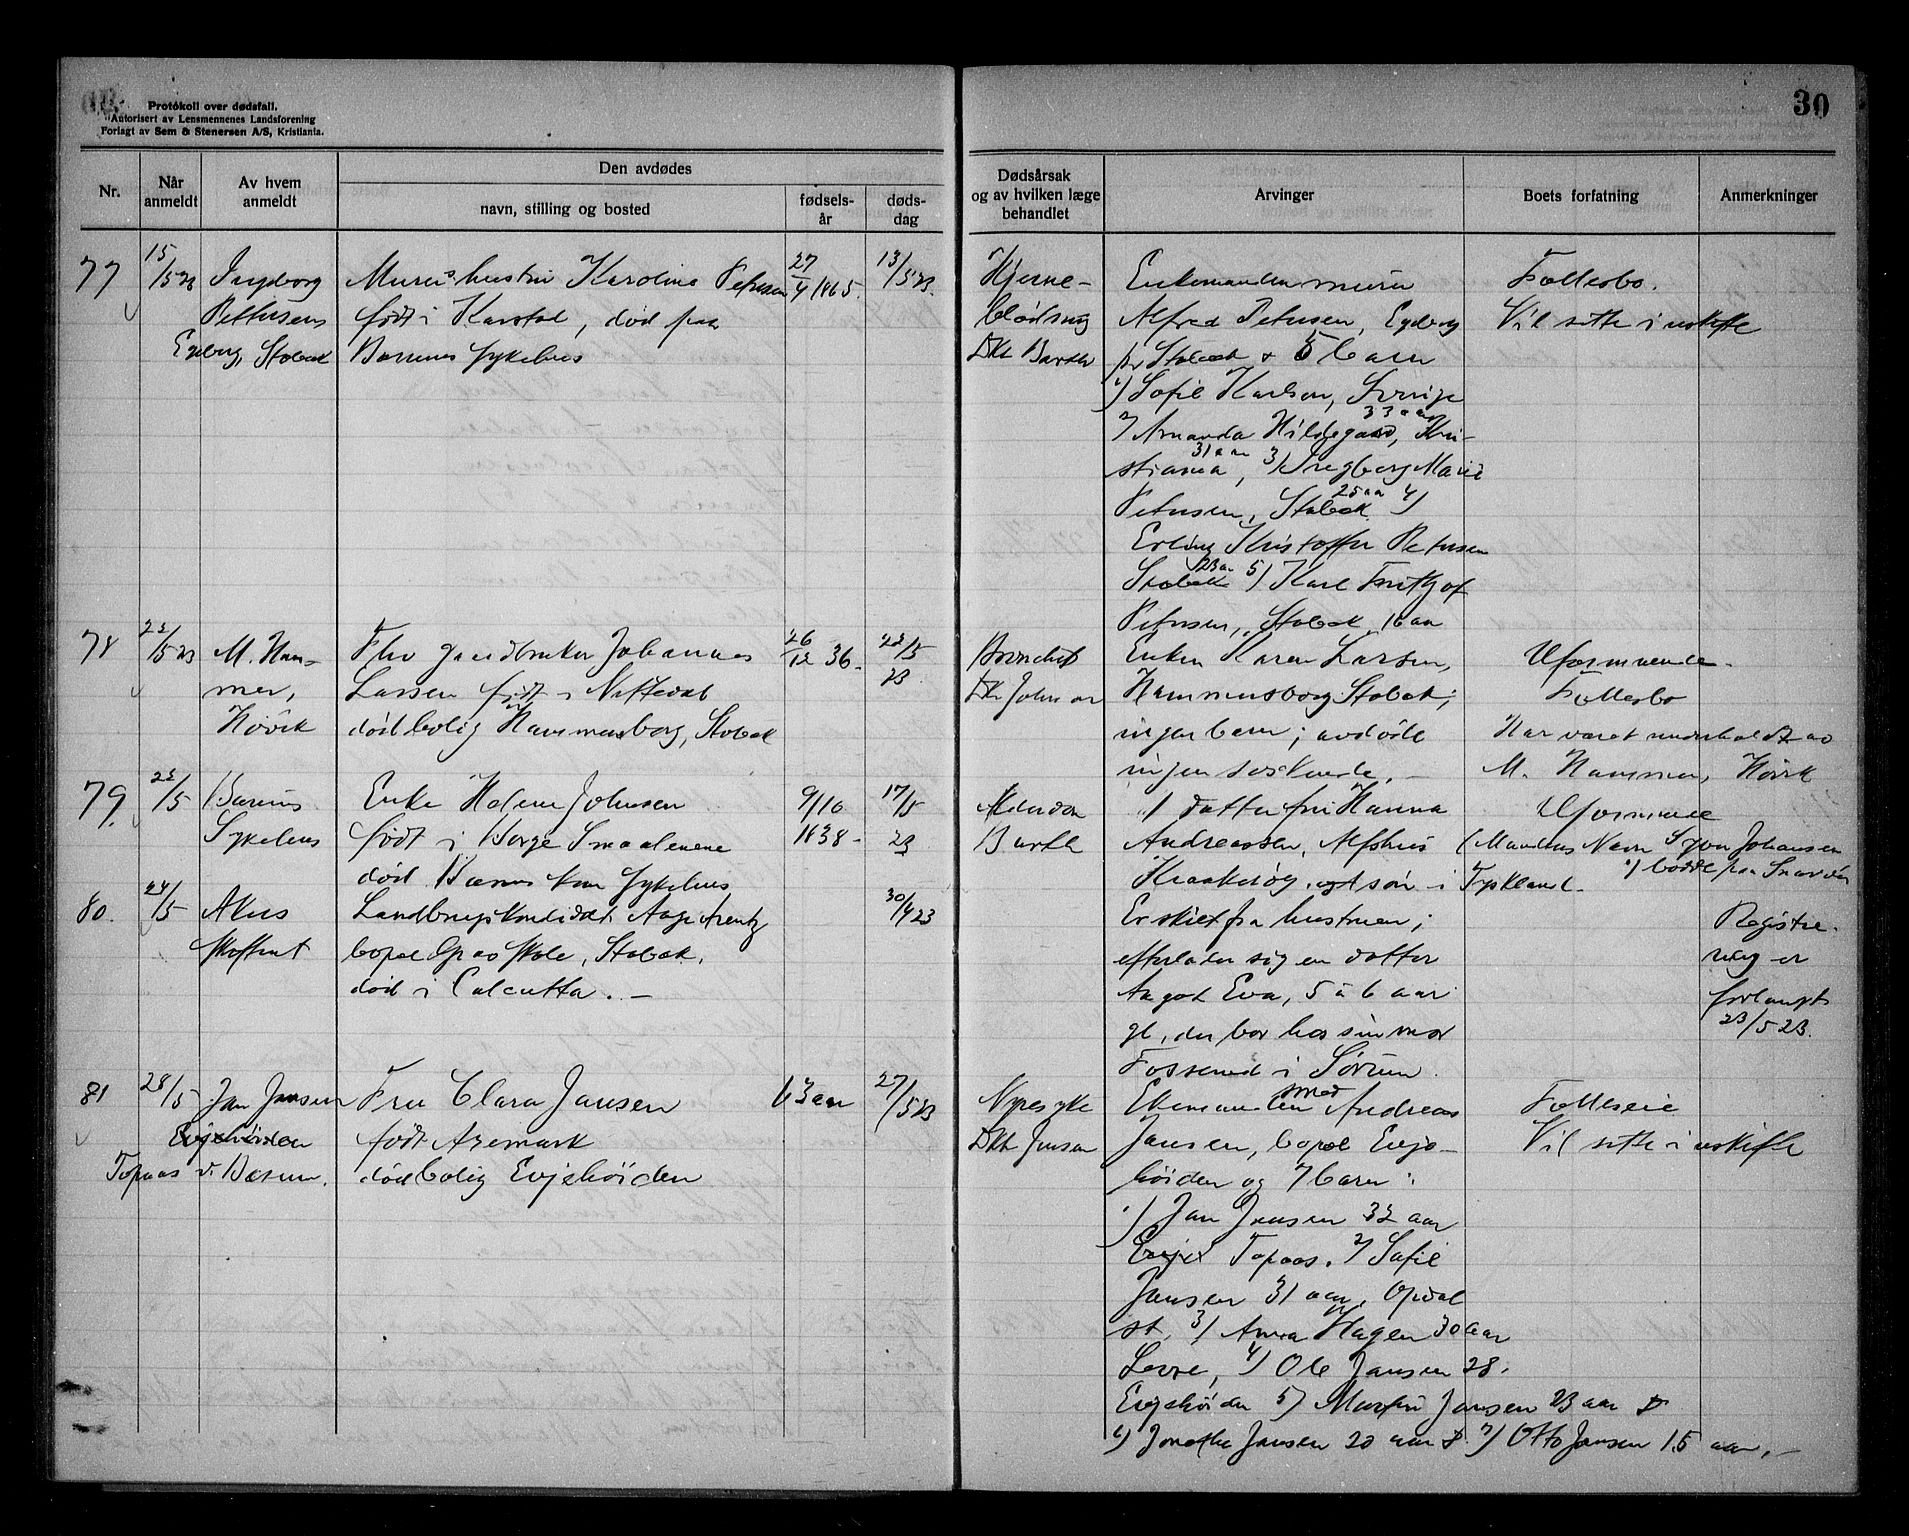 Protokoll over dødsfall.
Autorisert av Lensmennenes Landsforening
Forlagt av Sem & Stenersen A/S, Kristiania.
30
Nr.
Når anmeldt
Av hvem anmeldt
Den avdødes
navn, stilling og bosted
fødsels-år
døds-dag
Dødsårsak og av hvilken læge behandlet
Arvinger
Boets forfatning
Anmerkninger
77
15/5 23
Ingeborg
Pettersens
Egeberg, Stabæk
Murershustru Karoline Petersen
født i Karstad, død paa
Bærums sykehus
27/4 1865.
13/5 23.
Hjerne-
blødning
Dkt Barth
Enkemanden murer
Alfred Petersen, Egeberg
pr Stabæk & 5 barn
1) Sofie Karlson, Sverige
33 aar
2) Amanda Hildegard, Kri-
31 aar
stiania, 3) Ingeborg Marie
25 aa
Petersen, Stabæk 4)
Erling Kristoffer Petersen
23 aa
Stabæk 5) Karl Frithjof
Petersen, Stabæk 16 aa
Fællesbo.
Vil sitte i uskifte
78
22/5 23
M. Ham-
mer,
Høvik
Fhv gaardbruker Johannes
Larsen født i Nittedal
død bolig Hammersborg, Stabæk
26/12 36-
22/5 23.
Bronchit
Dkt Johnsen
Enken Karen Larsen,
Hammersborg Stabæk;
ingen barn; avdøde
ingen søskende. -
Uformuende.
Fællesbo
Har været underholdt av
M. Hammer, Høvik
79.
23/5
Bærums
Sykehus
Enke Helene Johnsen
født i Borge Smaalenene
død Bærums kom sykehus
9/10
1838-
17/5
23
Alderdom
Barth
1) datter fru Hanna
Andreassen, Alfshus
Kraakerøy, og 1 søn i Tyskland.
Uformuende
(Mandens Navn Syver Johansen
bodde paa Snarøen
80.
24/5
Akers
skifteret
Landbrugskandidat Aage Arentz
bopæl Graa skole, Stabæk,
død i Calcutta. -
30/4 23
Er skilt fra hustruen;
efterlader sig en datter
Aagot Eva, 5 à 6 aar
gl, der bor hos sin mor
Fossenud i Sørum.
Registre-
ring er
forlangt
23/5 23.
81
28/5
Jan Jansen
Evjehøiden
Topaas v. Bærum.
Fru Clara Jansen
født Aremark
død bolig Evjehøiden
63 aar
27/5 23
Nyresyke
Dkt Jensen
smed
Ekemanden Andreas
Jansen, bopæl Evje-
høiden og 7 barn:
1) Jan Jansen 32 aar
Evje Topaas. 2) Sofie
Jansen 31 aar, Opdal
st, 3) Anna Hagen 30 aar
4) Ole Jansen 28.
Evjehøiden 5) Martin Jansen 23 aar
6) Jonetha Jansen 20 aar 7) Otto Jansen 15 aar. -
Fælleseie
Vil sitte i uskifte